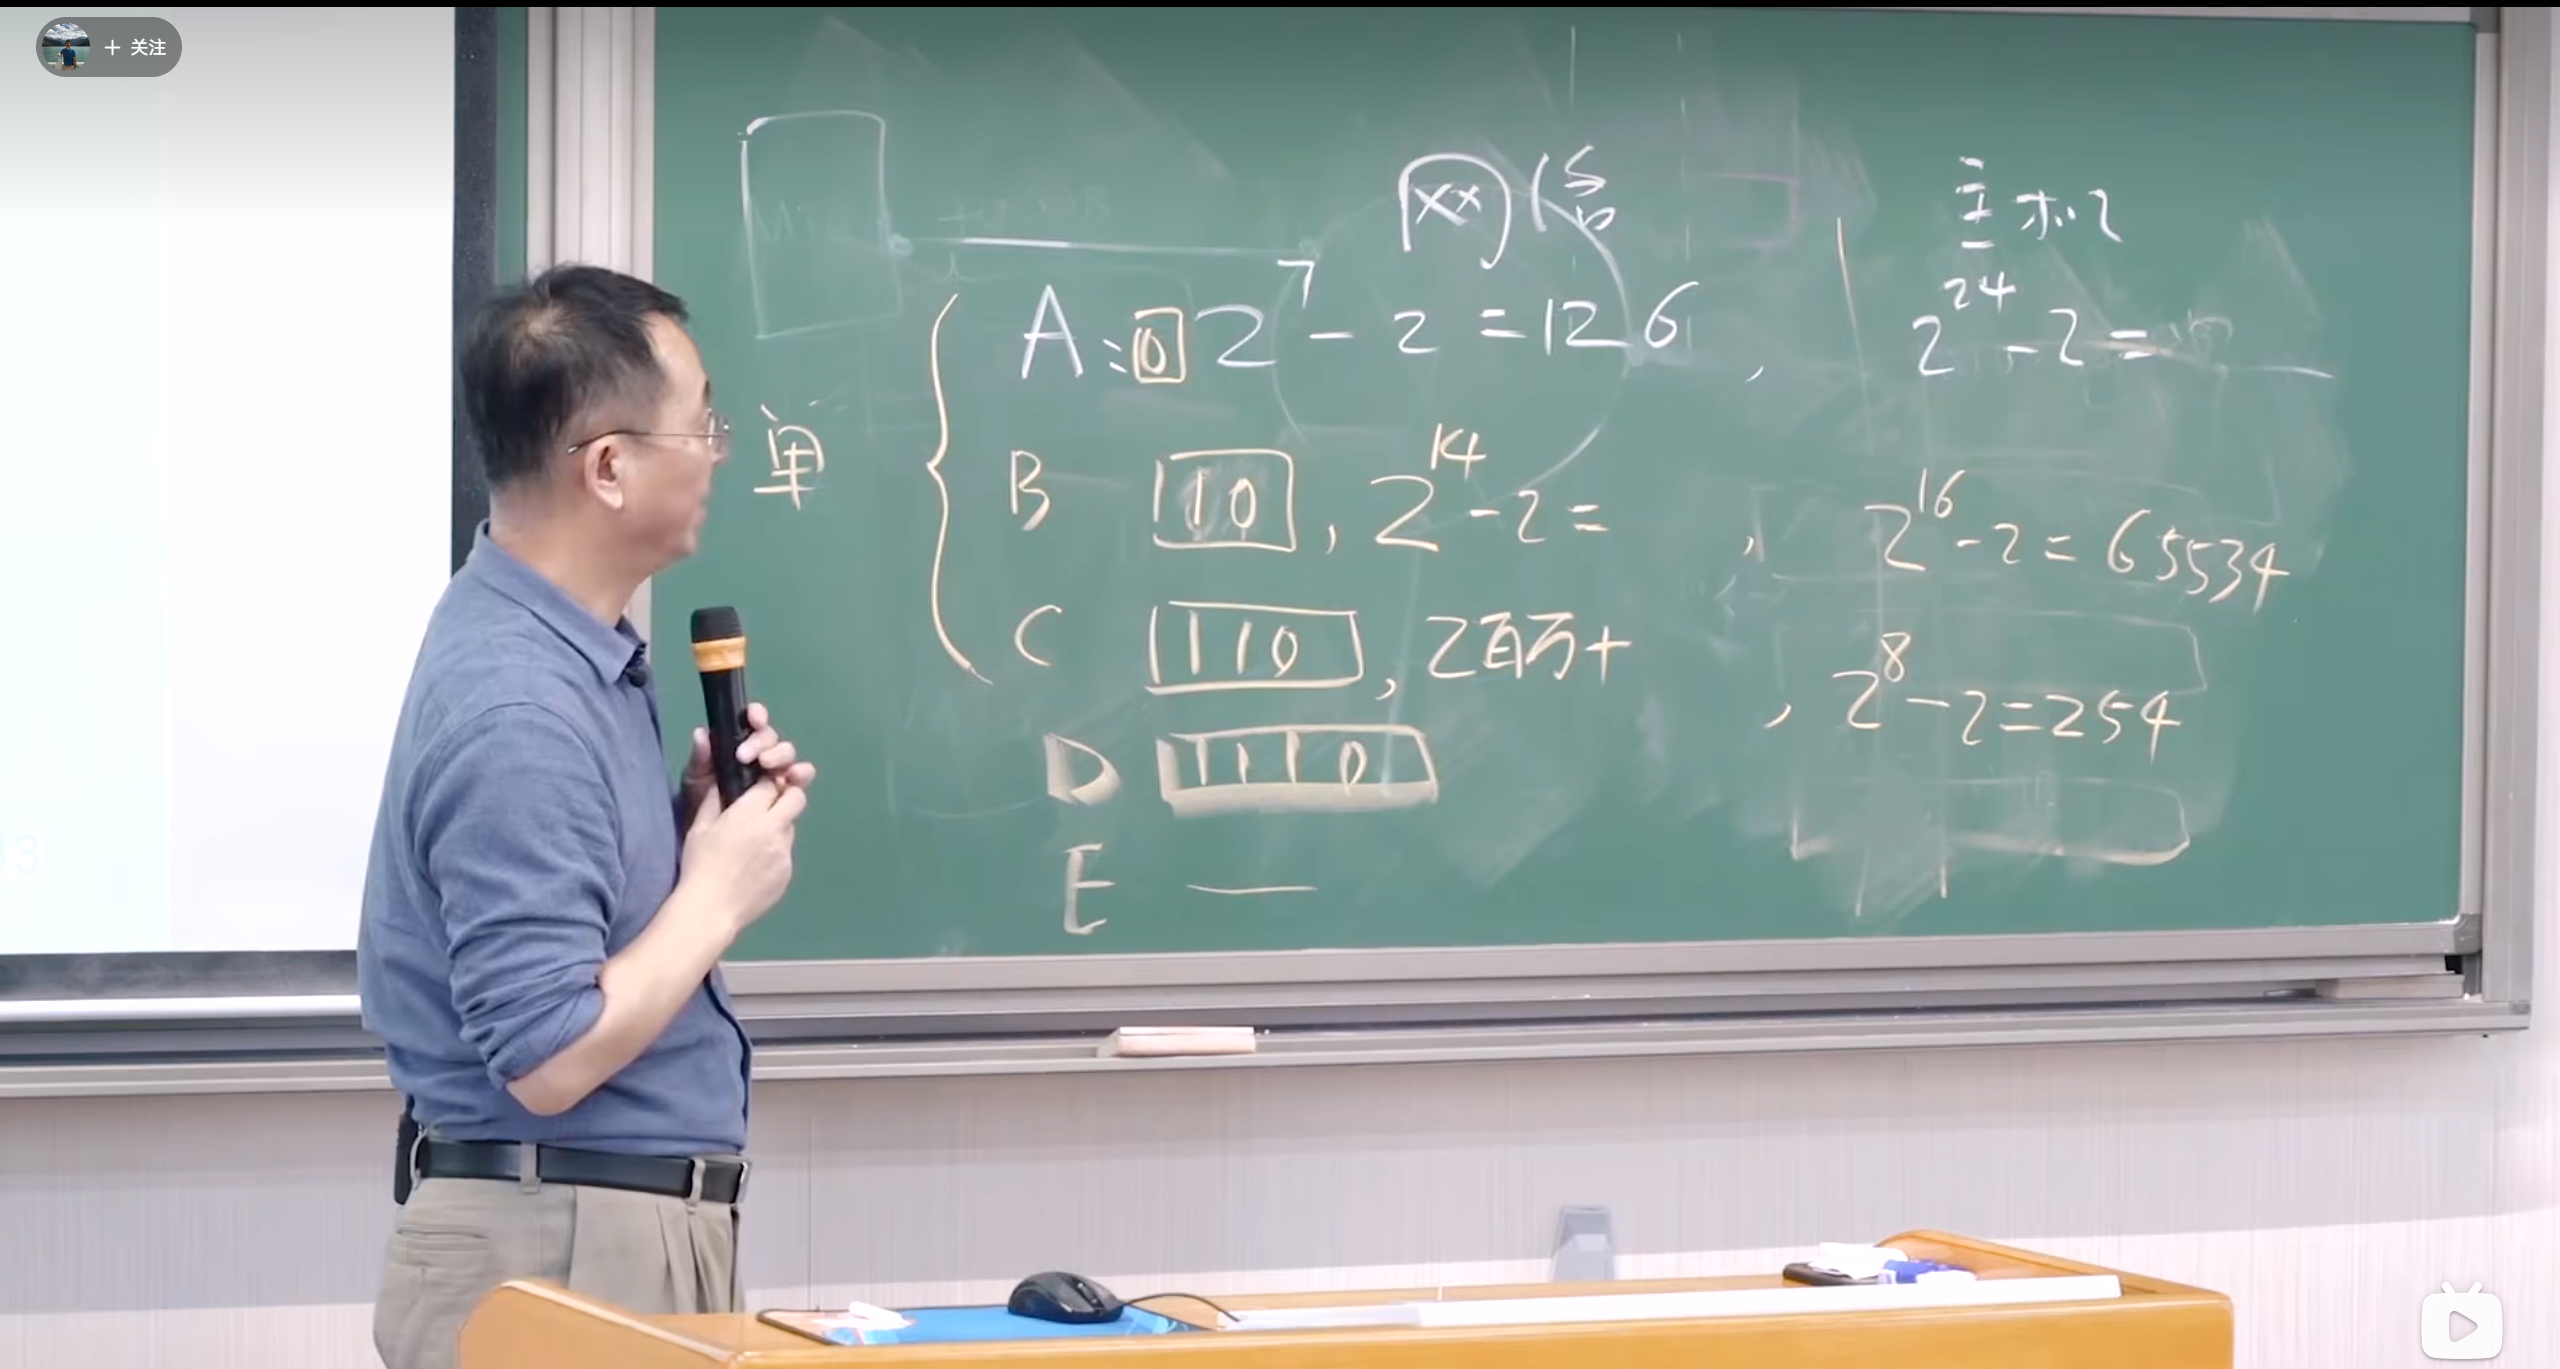 + 关注
XX
主机
A: 0 2⁷ - 2 = 126, 2²⁴ - 2 =
单
B 10, 2¹⁴ - 2 = , 2¹⁶ - 2 = 65534
C 110, 2百万+ , 2⁸ - 2 = 254
D 1110
E —